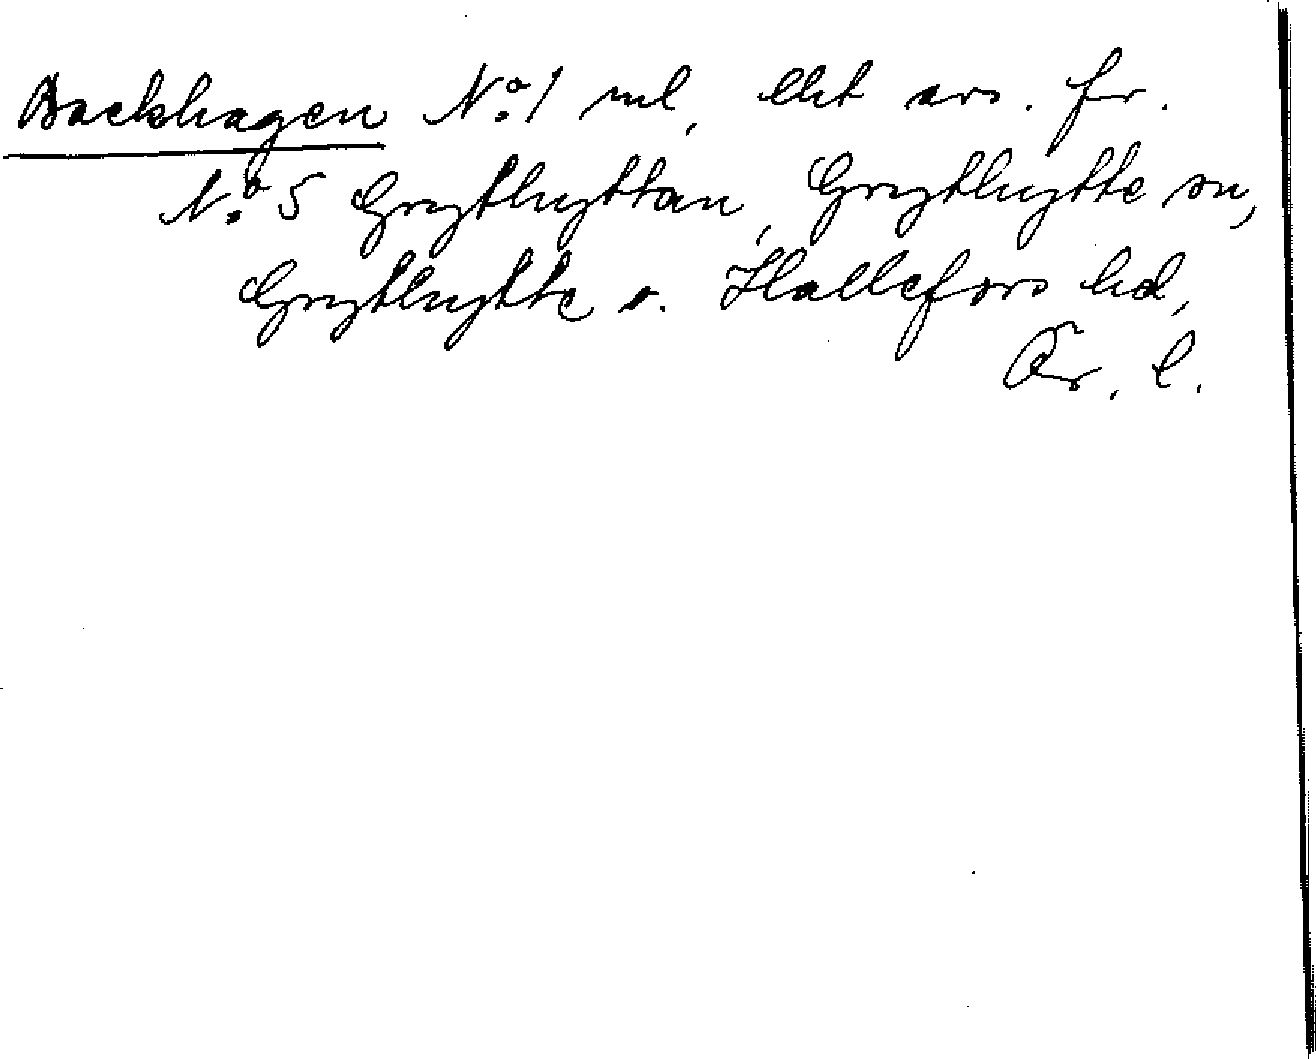 Backhagen No. 1 ml, lht avs. fr.
No. 5 Grythyttan, Grythytte sn,
Grythytte o. Hällefors bd,
Ör. l.